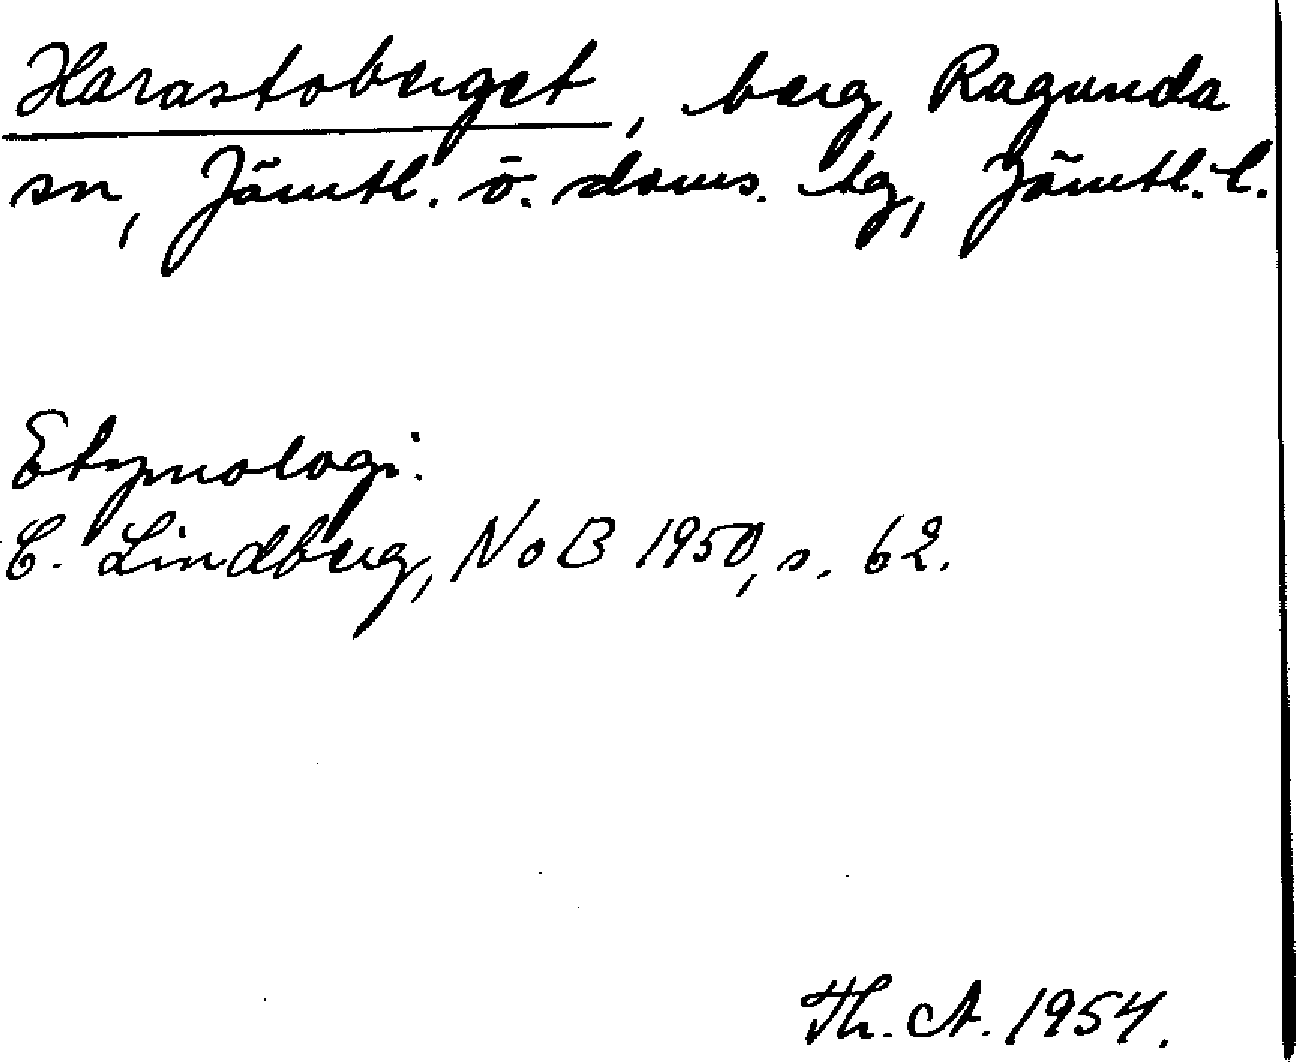 Harastoberget, berg, Ragunda
sn, Jämtl. ö. doms. tg, Jämtl. l.
Etymologi:
C. Lindberg, NoB 1950, s. 62.
Th. A. 1954.